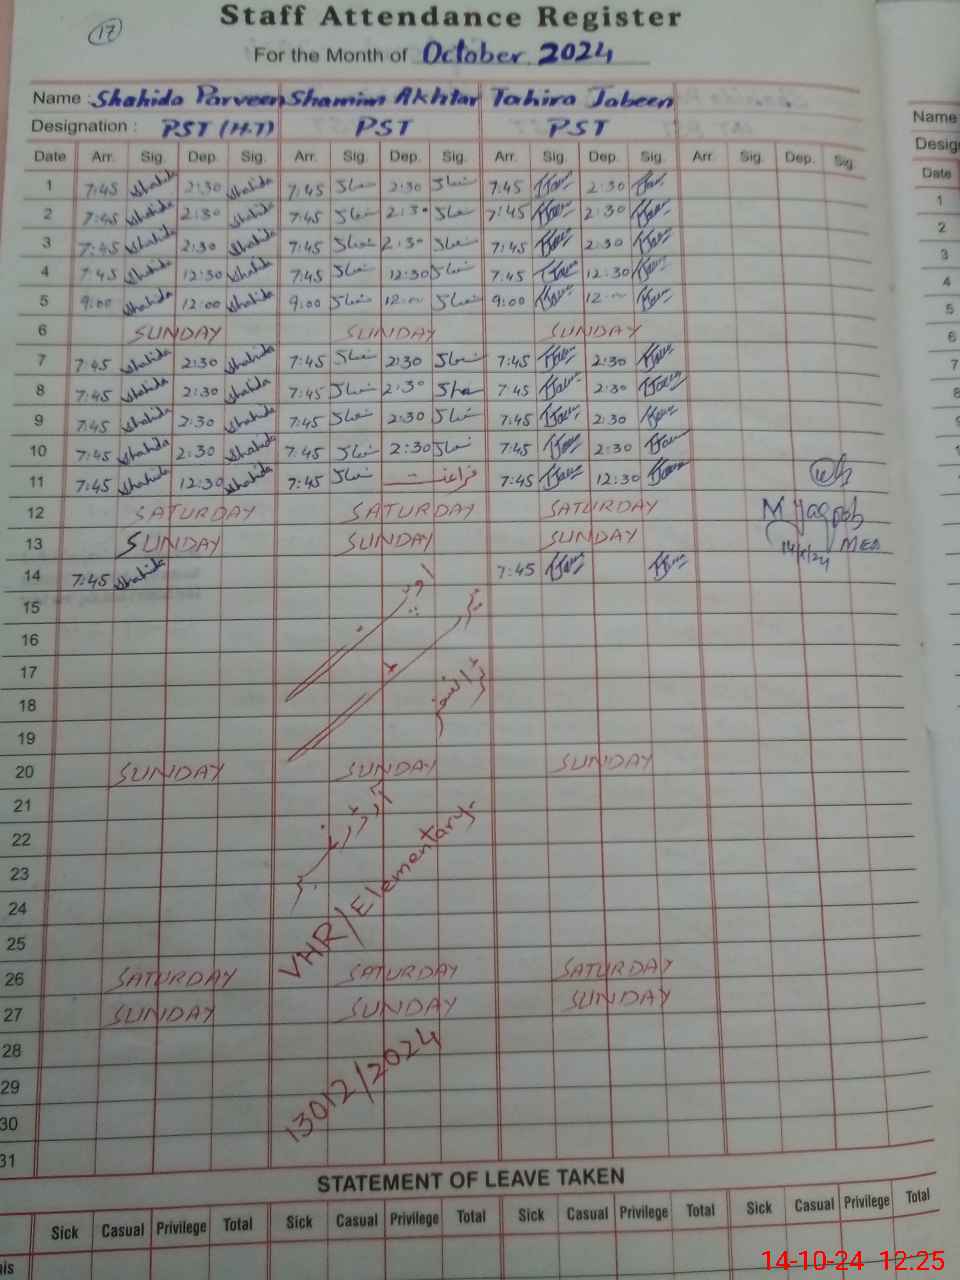 17
Staff Attendance Register
For the Month of October 2024
Name : Shahida Parveen Shamim Akhtar Tahira Jabeen
Designation : PST (H.T) PST PST
Date Arr. Sig. Dep. Sig. Arr. Sig. Dep. Sig. Arr. Sig. Dep. Sig. Arr. Sig. Dep. Sig.
1 7:45 Shahida 2:30 Shahida 7:45 2:30 7:45 2:30
2 7:45 Shahida 2:30 Shahida 7:45 2:30 7:45 2:30
3 7:45 Shahida 2:30 Shahida 7:45 2:30 7:45 2:30
4 7:45 Shahida 12:30 Shahida 7:45 12:30 7:45 12:30
5 9:00 Shahida 12:00 Shahida 9:00 12:00 9:00 12
6 SUNDAY SUNDAY SUNDAY
7 7:45 Shahida 2:30 Shahida 7:45 2:30 7:45 2:30
8 7:45 Shahida 2:30 Shahida 7:45 2:30 7:45 2:30
9 7:45 Shahida 2:30 Shahida 7:45 2:30 7:45 2:30
10 7:45 Shahida 2:30 Shahida 7:45 2:30 7:45 2:30
11 7:45 Shahida 12:30 Shahida 7:45 فراغت 7:45 12:30
12 SATURDAY SATURDAY SATURDAY
13 SUNDAY SUNDAY SUNDAY
M Yaqoob
MEA
14/X/24
14 7:45 Shahida 7:45
15
16
17
18
ٹرانسفر
19
20 SUNDAY SUNDAY SUNDAY
21
آرڈر نمبر
22
23
VHR/Elementary-
24
25
26 SATURDAY SATURDAY SATURDAY
27 SUNDAY SUNDAY SUNDAY
28
13012/2024
29
30
31
STATEMENT OF LEAVE TAKEN
Sick Casual Privilege Total Sick Casual Privilege Total Sick Casual Privilege Total Sick Casual Privilege Total
Name
Date
1
2
3
4
5
6
7
8
9
14-10-24 12.25